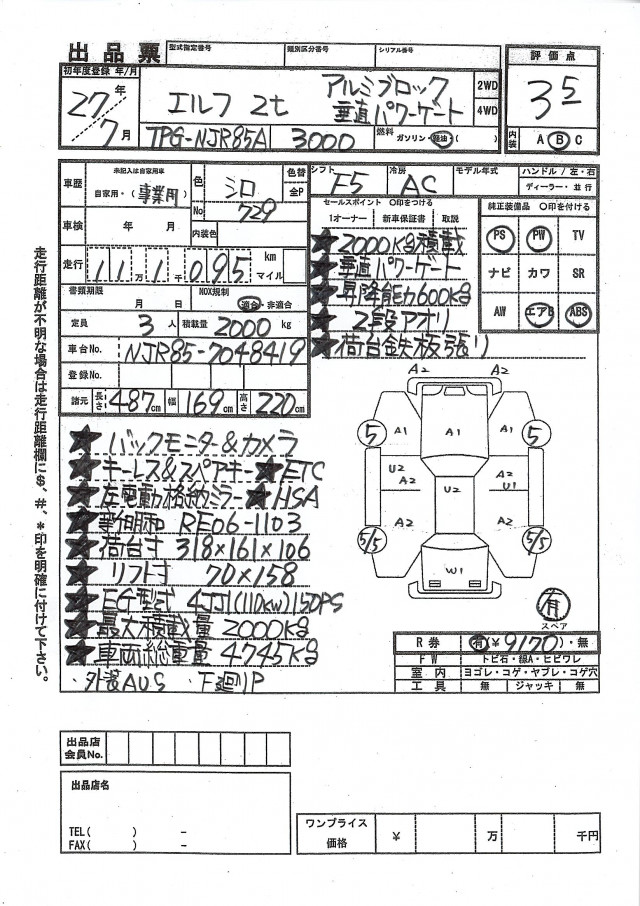 出品票
型式指定番号
類別区分番号
シリアル番号
評価点
3 5
内装 A B C
初年度登録 年/月
27年
7月
エルフ 2t
アルミブロック
垂直パワーゲート
2WD
4WD
TPG-NJR85A
3000
燃料 ガソリン・軽油・( )
車歴
未記入は自家用車
自家用・(事業用)
色
シロ
No 729
色替
全P
内装色
シフト F5
冷房 AC
モデル年式
ハンドル / 左・右
ディーラー・並行
車検 年 月
走行 11万1千095 km
マイル
セールスポイント ○印をつける
1オーナー 新車保証書 取説
★2000kg積載
★垂直パワーゲート
★昇降能力600kg
★2段アオリ
★荷台鉄板張り
純正装備品 ○印を付ける
PS PW TV
ナビ カワ SR
AW エアB ABS
書類期限 月 日
NOX規制 適合・非適合
定員 3人
積載量 2000 kg
車台No. NJR85-7048419
登録No.
諸元 長さ 487cm 幅 169cm 高さ 220cm
走行距離が不明な場合は走行距離欄に$、#、*印を明確に付けて下さい。
★バックモニター&カメラ
★キーレス&スペアキー★ETC
★左電動格納ミラー★HSA
★新明和 RE06-1103
★荷台寸 318×161×106
★リフト寸 70×158
★EG型式 4JJ1(110kw)150PS
★最大積載量 2000kg
★車両総重量 4745kg
・外装AUS ・下廻りP
A2
A2 A2
5 A1 A1 A1 5
U2 A2 U2 A2 U1
A2 A2
5/5 W1 5/5
有
スペア
R券 有(¥9170)・無
FW トビ石・線A・ヒビワレ
室内 ヨゴレ・コゲ・ヤブレ・コゲ穴
工具 無 ジャッキ 無
出品店
会員No.
出品店名
TEL( ) -
FAX( ) -
ワンプライス
価格
¥ 万 千円